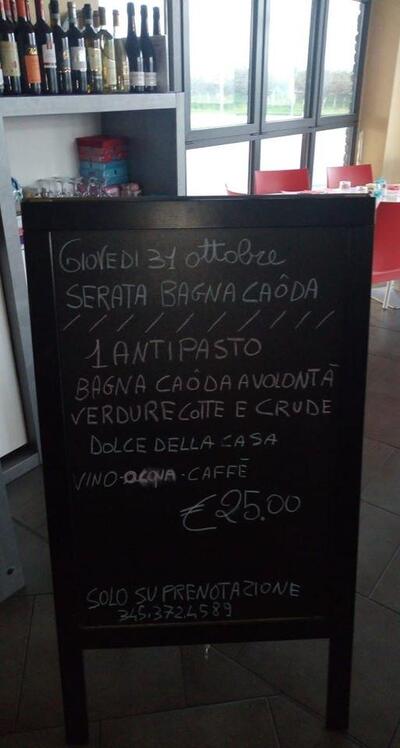 GIOVEDI 31 ottobre
SERATA BAGNA CAÔDA
/ / / / / / / / / / / /
1 ANTIPASTO
BAGNA CAÔDA A VOLONTÀ
VERDURE COTTE E CRUDE
DOLCE DELLA CASA
VINO-ACQUA-CAFFÈ
€25.00
SOLO SU PRENOTAZIONE
345.372.4589